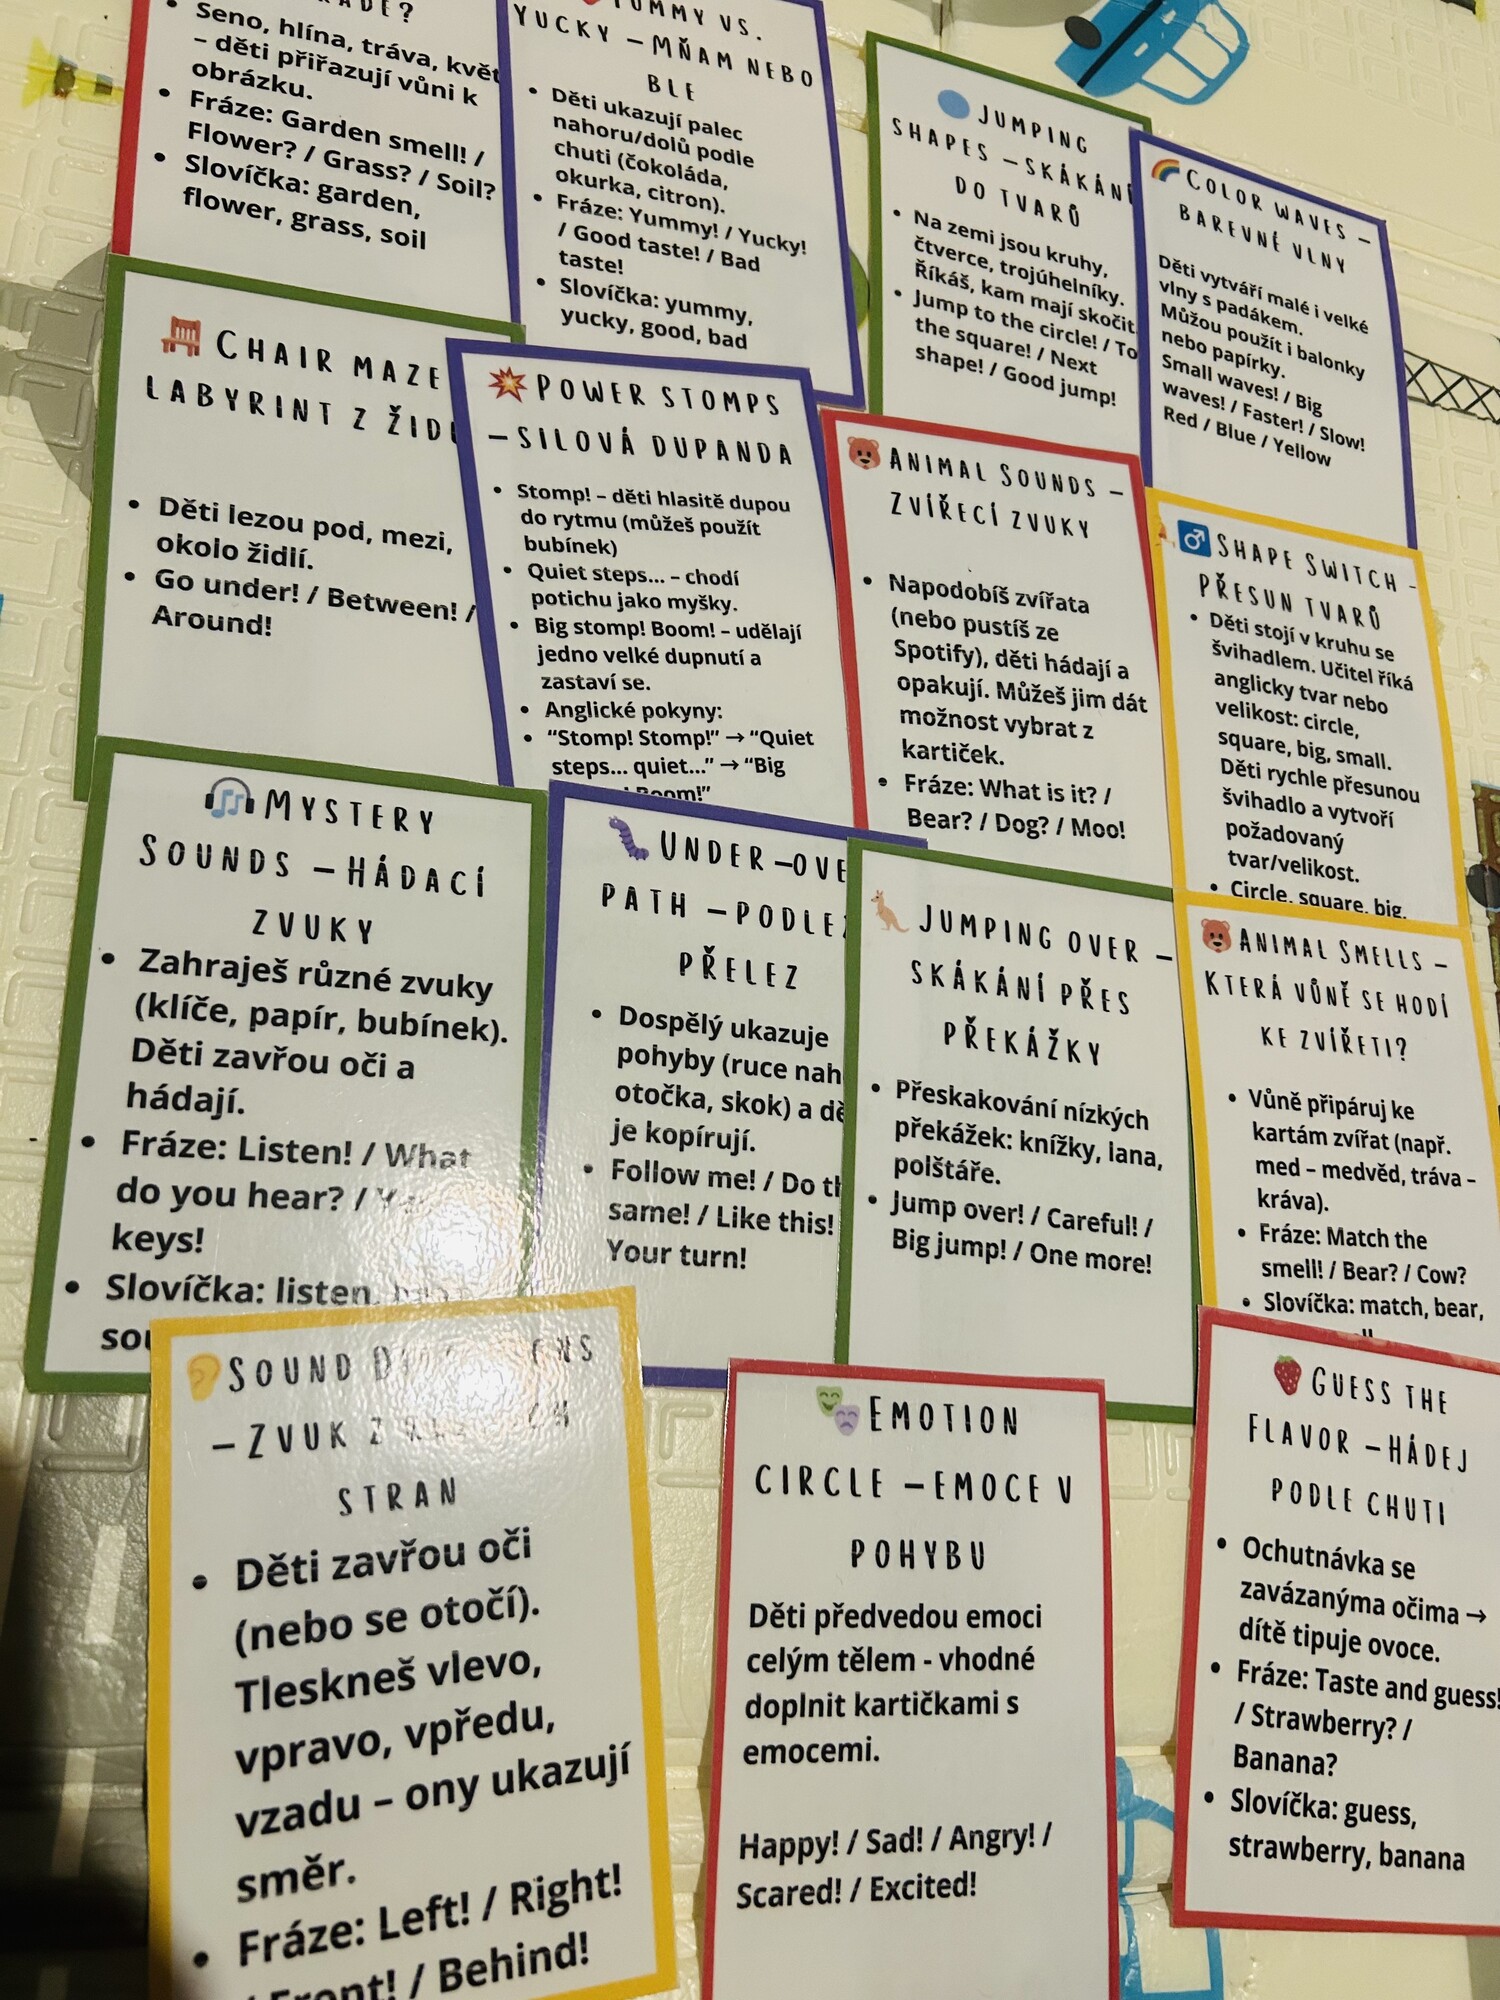 Seno, hlína, tráva, květ
– děti přiřazují vůni k
obrázku.
Fráze: Garden smell! /
Flower? / Grass? / Soil?
Slovíčka: garden,
flower, grass, soil
YUMMY VS.
YUCKY – MŇAM NEBO
BLE
Děti ukazují palec
nahoru/dolů podle
chuti (čokoláda,
okurka, citron).
Fráze: Yummy! / Yucky!
/ Good taste! / Bad
taste!
Slovíčka: yummy,
yucky, good, bad
JUMPING
SHAPES – SKÁKÁNÍ
DO TVARŮ
Na zemi jsou kruhy,
čtverce, trojúhelníky.
Říkáš, kam mají skočit.
Jump to the circle! / To
the square! / Next
shape! / Good jump!
COLOR WAVES –
BAREVNÉ VLNY
Děti vytváří malé i velké
vlny s padákem.
Můžou použít i balonky
nebo papírky.
Small waves! / Big
waves! / Faster! / Slow!
Red / Blue / Yellow
CHAIR MAZE
LABYRINT Z
Děti lezou pod, mezi,
okolo židlí.
Go under! / Between! /
Around!
POWER STOMPS
– SILOVÁ DUPANDA
Stomp! – děti hlasitě dupou
do rytmu (můžeš použít
bubínek)
Quiet steps... – chodí
potichu jako myšky.
Big stomp! Boom! – udělají
jedno velké dupnutí a
zastaví se.
Anglické pokyny:
“Stomp! Stomp!” → “Quiet
steps... quiet...” → “Big
Boom!”
ANIMAL SOUNDS –
ZVÍŘECÍ ZVUKY
Napodobíš zvířata
(nebo pustíš ze
Spotify), děti hádají a
opakují. Můžeš jim dát
možnost vybrat z
kartiček.
Fráze: What is it? /
Bear? / Dog? / Moo!
SHAPE SWITCH –
PŘESUN TVARŮ
Děti stojí v kruhu se
švihadlem. Učitel říká
anglicky tvar nebo
velikost: circle,
square, big, small.
Děti rychle přesunou
švihadlo a vytvoří
požadovaný
tvar/velikost.
Circle, square, big,
MYSTERY
SOUNDS – HÁDACÍ
ZVUKY
Zahraješ různé zvuky
(klíče, papír, bubínek).
Děti zavřou oči a
hádají.
Fráze: Listen! / What
do you hear? /
keys!
Slovíčka: listen,
UNDER –
PATH –
PŘELEZ
Dospělý ukazuje
pohyby (ruce
otočka, skok) a
je kopírují.
Follow me! / Do
same! / Like this!
Your turn!
JUMPING OVER –
SKÁKÁNÍ PŘES
PŘEKÁŽKY
Přeskakování nízkých
překážek: knížky, lana,
polštáře.
Jump over! / Careful! /
Big jump! / One more!
ANIMAL SMELLS –
KTERÁ VŮNĚ SE HODÍ
KE ZVÍŘETI?
Vůně připáruj ke
kartám zvířat (např.
med – medvěd, tráva –
kráva).
Fráze: Match the
smell! / Bear? / Cow?
Slovíčka: match, bear,
SOUND
– ZVUK Z
STRAN
Děti zavřou oči
(nebo se otočí).
Tleskneš vlevo,
vpravo, vpředu,
vzadu – ony ukazují
směr.
Fráze: Left! / Right!
/ Front! / Behind!
EMOTION
CIRCLE – EMOCE V
POHYBU
Děti předvedou emoci
celým tělem - vhodné
doplnit kartičkami s
emocemi.
Happy! / Sad! / Angry! /
Scared! / Excited!
GUESS THE
FLAVOR – HÁDEJ
PODLE CHUTI
Ochutnávka se
zavázanýma očima →
dítě tipuje ovoce.
Fráze: Taste and guess!
/ Strawberry? /
Banana?
Slovíčka: guess,
strawberry, banana